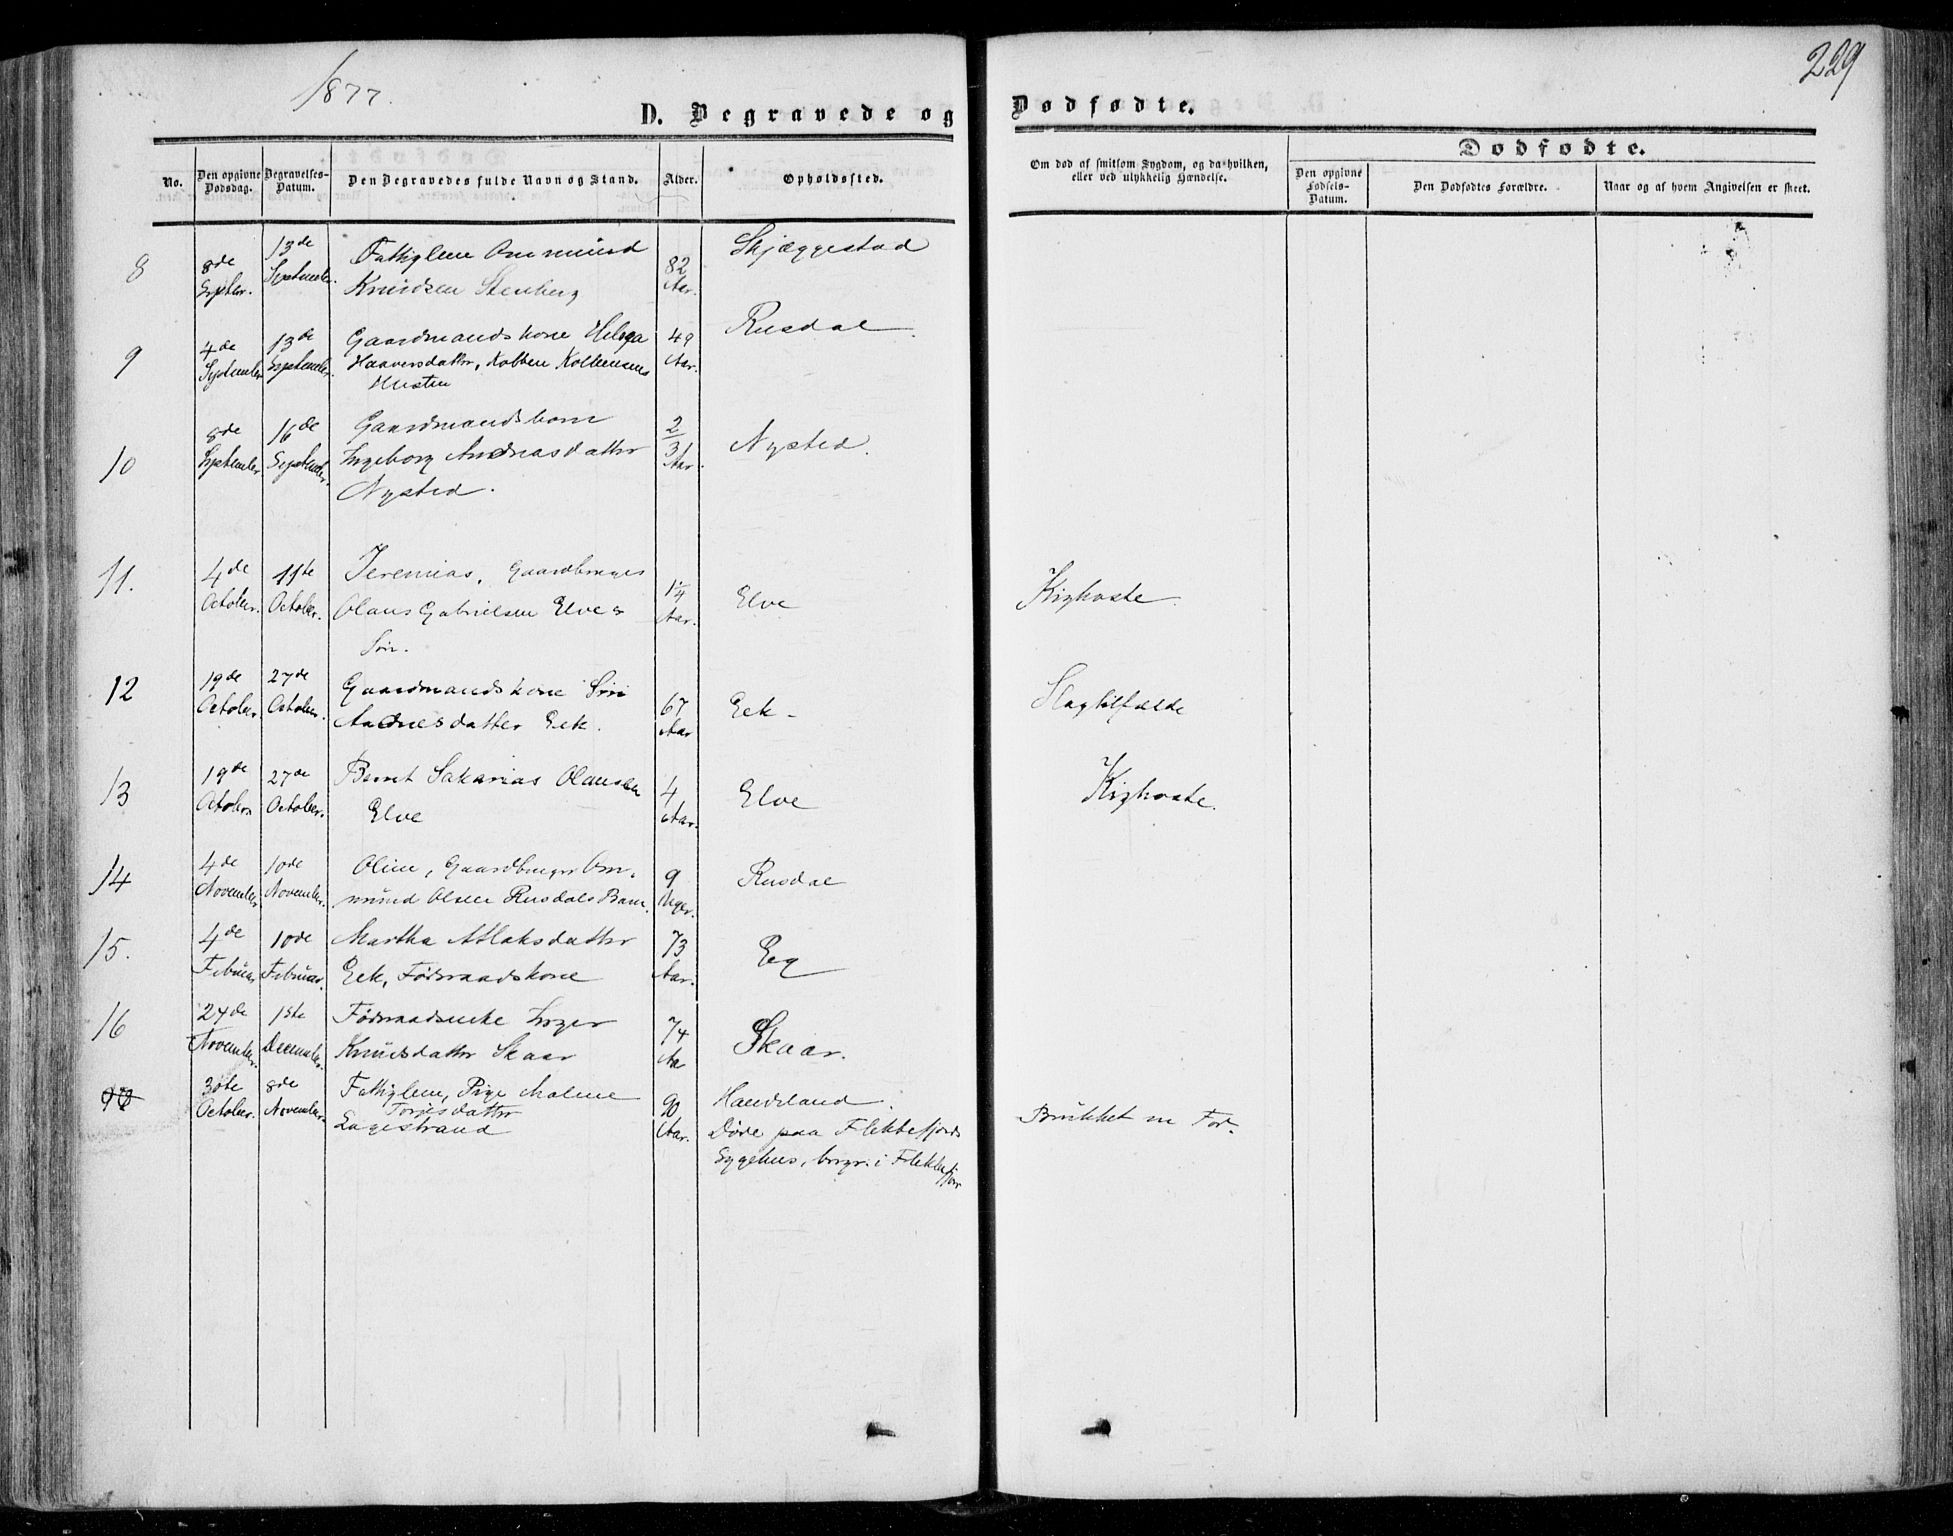 1877.
229
D. Begravede og Dødfødte.
Dødfødte.
No.
Den opgivne Dødsdag.
Begravelses-Datum.
Den Begravedes fulde Navn og Stand.
Alder.
Opholdssted.
Om død af smitsom Sygdom, og da hvilken,
eller ved ulykkelig Hændelse.
Den opgivne Fødsels-Datum.
Den Dødfødtes Forældre.
Naar og af hvem Angivelsen er skeet.
8 8de Septbr. 13de September. Fattiglem Ommund 82 Aar. Skjæggestad
Knudsen Stenberg
9 4de September 13de September. Gaardmandskone Helga 49 Aar. Rusdal.
Haaversdatter, Kolben Kolbensens
Hustru
10 8de September 16de September. Gaardmandsbarn 2/3 Aar. Nysted.
Ingeborg Andreasdatter
Nysted.
11. 4de October. 11te October. Jeremias, Gaardbruger 1 1/4 Aar. Elve Kighoste.
Olaus Gabrielsen Elves
Søn.
12 19de October. 27de October. Gaardmandskone Siri 67 Aar Eek. Slagtilfælde
Aadnesdatter Eek.
13 19de October 27de October. Bernt Sakarias Olausen 4 Aar. Elve Kighoste.
Elve
14 4de November 10de November. Oline, Gaardbruger Om- 9 Uger. Rusdal
mund Olsen Rusdals Barn.
15. 4de Februar 10de Februar. Martha Atlaksdatter 73 Aar. Eeg
Eek, Føderaadskone
16 24de November. 1ste December. Føderaadsenke Inger 74 Aar Skaar.
Knudsdatter Skaar
30te October. 8de November. Fattiglem, Pige Malene 90 Aar. Haudeland.
Torjesdatter
Lagestrand
Døde paa Flekkefjords
Sygehus, begr. i Flekkefjor
Brukket en Fod.